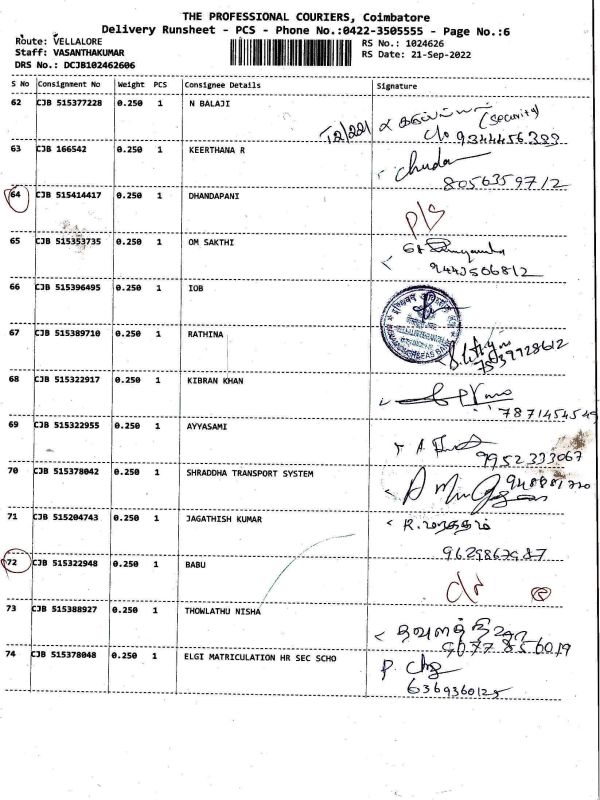 THE PROFESSIONAL COURIERS, Coimbatore
Delivery Runsheet - PCS - Phone No.:0422-3505555 - Page No.:6
Route: VELLALORE
Staff: VASANTHAKUMAR
DRS No.: DCJB102462606
RS No.: 1024626
RS Date: 21-Sep-2022
S No Consignment No Weight PCS Consignee Details Signature
62 CJB 515377228 0.250 1 N BALAJI
(security)
c/o 9344456399
63 CJB 166542 0.250 1 KEERTHANA R
8056359712
64 CJB 515414417 0.250 1 DHANDAPANI
65 CJB 515353735 0.250 1 OM SAKTHI
9443506812
66 CJB 515396495 0.250 1 IOB
67 CJB 515389710 0.250 1 RATHINA
68 CJB 515322917 0.250 1 KIBRAN KHAN
7871454549
69 CJB 515322955 0.250 1 AYYASAMI
9952333067
70 CJB 515378042 0.250 1 SHRADDHA TRANSPORT SYSTEM
71 CJB 515204743 0.250 1 JAGATHISH KUMAR
9629867987
72 CJB 515322948 0.250 1 BABU
73 CJB 515388927 0.250 1 THOWLATHU NISHA
74 CJB 515378048 0.250 1 ELGI MATRICULATION HR SEC SCHO
6369360125